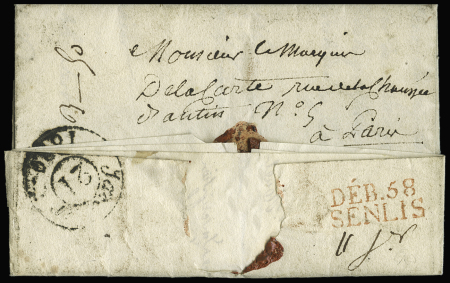 Monsieur le Marquis
De la Carte rue de la Chaussée
d'antin N° 5
à Paris
DÉB. 58
SENLIS